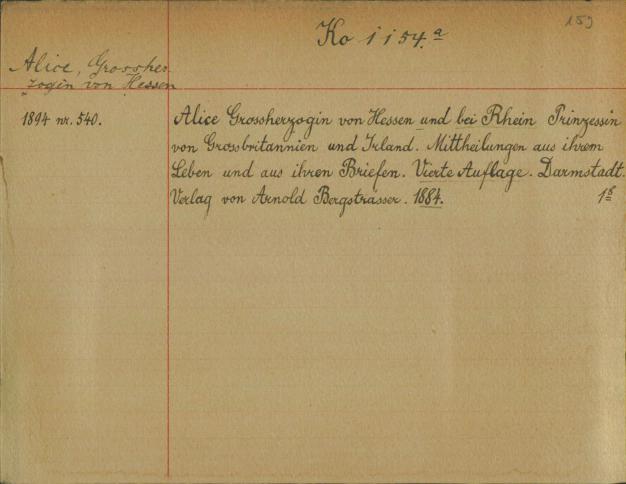 159
Ko 1154.a
Alice, Grossher.
zogin von Hessen
1894 nr. 540.
Alice Grossherzogin von Hessen und bei Rhein Prinzessin
von Grossbritannien und Irland. Mittheilungen aus ihrem
Leben und aus ihren Briefen. Vierte Auflage. Darmstadt.
Verlag von Arnold Bergsträsser. 1884. 18